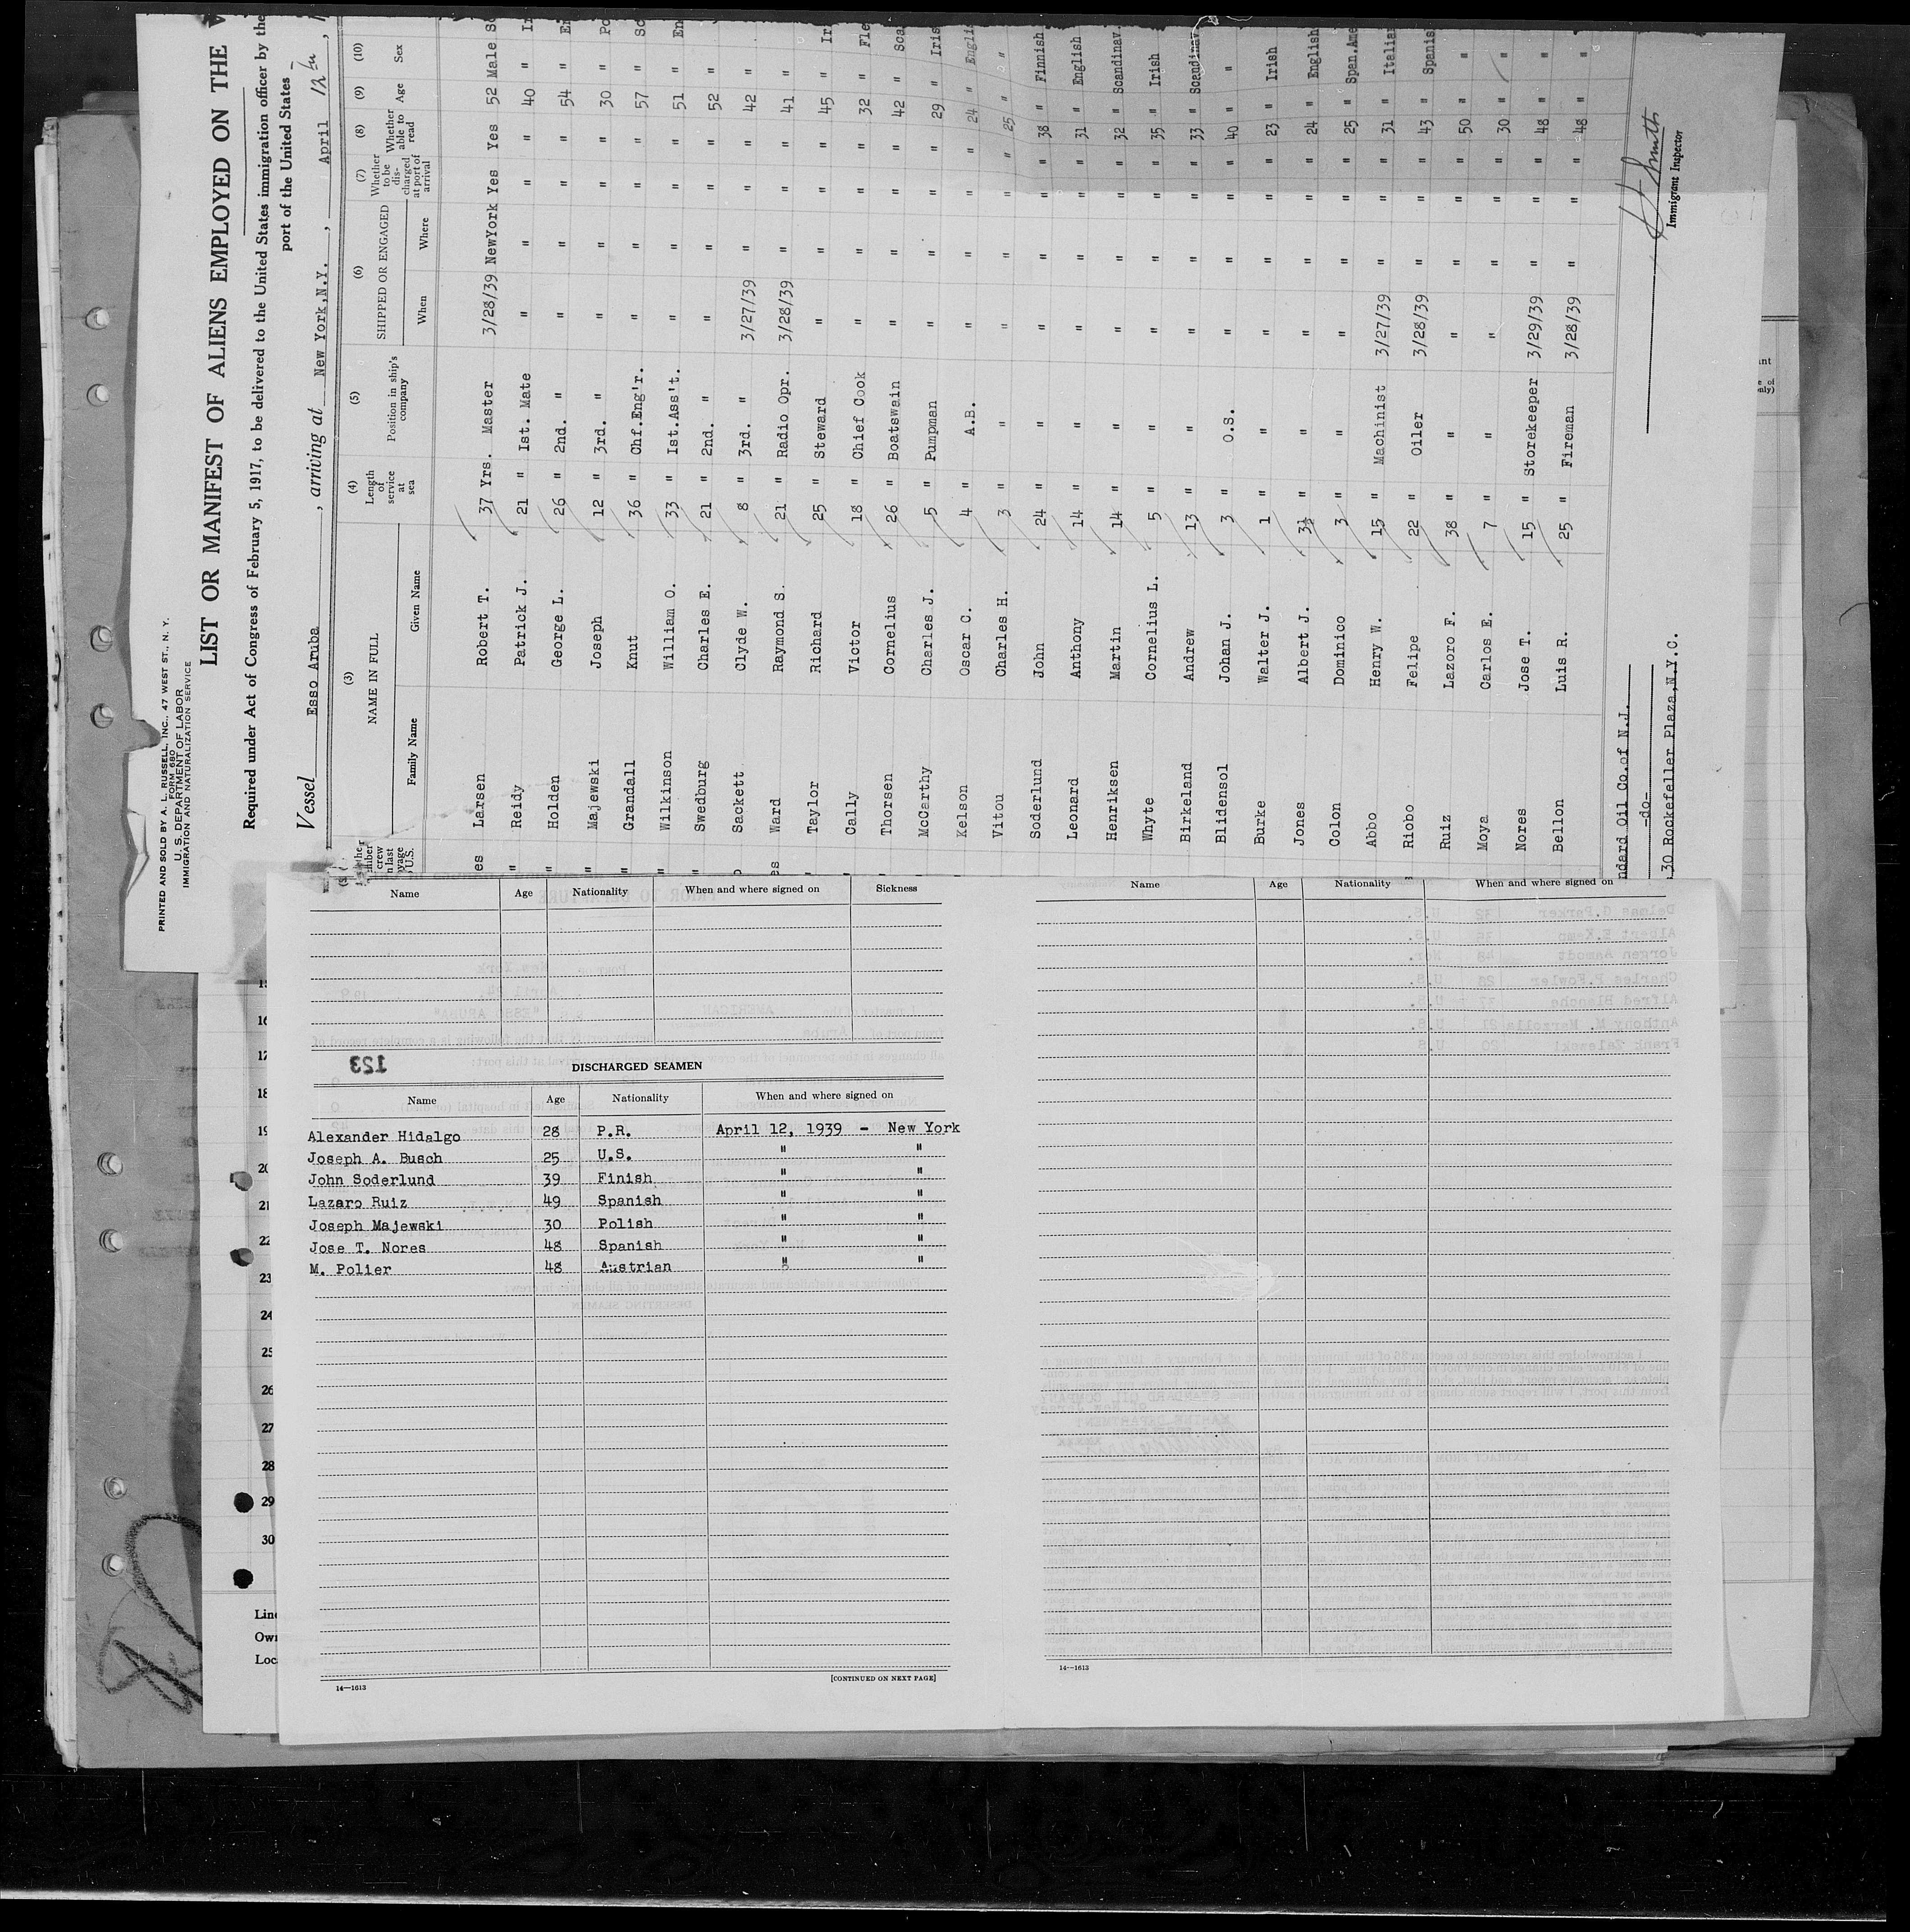 PRINTED AND SOLD BY A. L. RUSSELL, INC., 47 WEST ST., N. Y.
FORM 680
U. S. DEPARTMENT OF LABOR
IMMIGRATION AND NATURALIZATION SERVICE
LIST OR MANIFEST OF ALIENS EMPLOYED ON THE
Required under Act of Congress of February 5, 1917, to be delivered to the United States immigration officer by the
port of the United States
Vessel Esso Aruba, arriving at New York, N.Y., April 12th,
(3) (4) (5) (6) (7) (8) (9) (10)
NAME IN FULL Length of service at sea Position in ship's company SHIPPED OR ENGAGED Whether to be discharged at port of arrival Whether able to read Age Sex
Family Name Given Name When Where
Larsen Robert T. 37 Yrs. Master 3/28/39 NewYork Yes Yes 52 Male
Reidy Patrick J. 21 " Ist. Mate " " " " 40 "
Holden George L. 26 " 2nd. " " " " " 54 "
Majewski Joseph 12 " 3rd. " " " " " 30 "
Grandall Knut 36 " Chf.Eng'r. " " " " 57 "
Wilkinson William O. 33 " Ist.Ass't. " " " " 51 "
Swedburg Charles E. 21 " 2nd. " " " " " 52 "
Sackett Clyde W. 8 " 3rd. " 3/27/39 " " " 42 "
Ward Raymond S. 21 " Radio Opr. 3/28/39 " " " 41 "
Taylor Richard 25 " Steward " " " " 45 "
Cally Victor 18 " Chief Cook " " " " 32 "
Thorsen Cornelius 26 " Boatswain " " " " 42 "
McCarthy Charles J. 5 " Pumpman " " " " 29 "
Kelson Oscar C. 4 " A.B. " " " " 24 "
Vitou Charles H. 3 " " " " " " 25 " "
Soderlund John 24 " " " " " " 38 " Finnish
Leonard Anthony 14 " " " " " " 31 " English
Henriksen Martin 14 " " " " " " 32 " Scandinav.
Whyte Cornelius L. 5 " " " " " " 35 " Irish
Birkeland Andrew 13 " " " " " " 33 " Scandinav.
Blidensol Johan J. 3 " O.S. " " " " 40 " "
Burke Walter J. 1 " " " " " " 23 " Irish
Jones Albert J. 3½ " " " " " " 24 " English
Colon Dominico 3 " " " " " " 25 " Span.Ame
Abbo Henry W. 15 " Machinist 3/27/39 " " " 31 " Italian
Riobo Felipe 22 " Oiler 3/28/39 " " " 43 " Spanis
Ruiz Lazoro F. 38 " " " " " " 50 " "
Moya Carlos E. 7 " " " " " " 30 " "
Nores Jose T. 15 " Storekeeper 3/29/39 " " " 48 " "
Bellon Luis R. 25 " Fireman 3/28/39 " " " 48 " "
ndard Oil Co. of N.J.
-do-
30 Rockefeller Plaza, N.Y.C.
Immigrant Inspector
Name Age Nationality When and where signed on Sickness
123
DISCHARGED SEAMEN
Name Age Nationality When and where signed on
Alexander Hidalgo 28 P.R. April 12, 1939 - New York
Joseph A. Busch 25 U.S. " "
John Soderlund 39 Finish " "
Lazaro Ruiz 49 Spanish " "
Joseph Majewski 30 Polish " "
Jose T. Nores 48 Spanish " "
M. Polier 48 Austrian " "
14—1613
[CONTINUED ON NEXT PAGE]
Name Age Nationality When and where signed on
14—1613
16
17
18
19
20
21
22
23
24
25
26
27
28
29
30
Line
Own
Loc